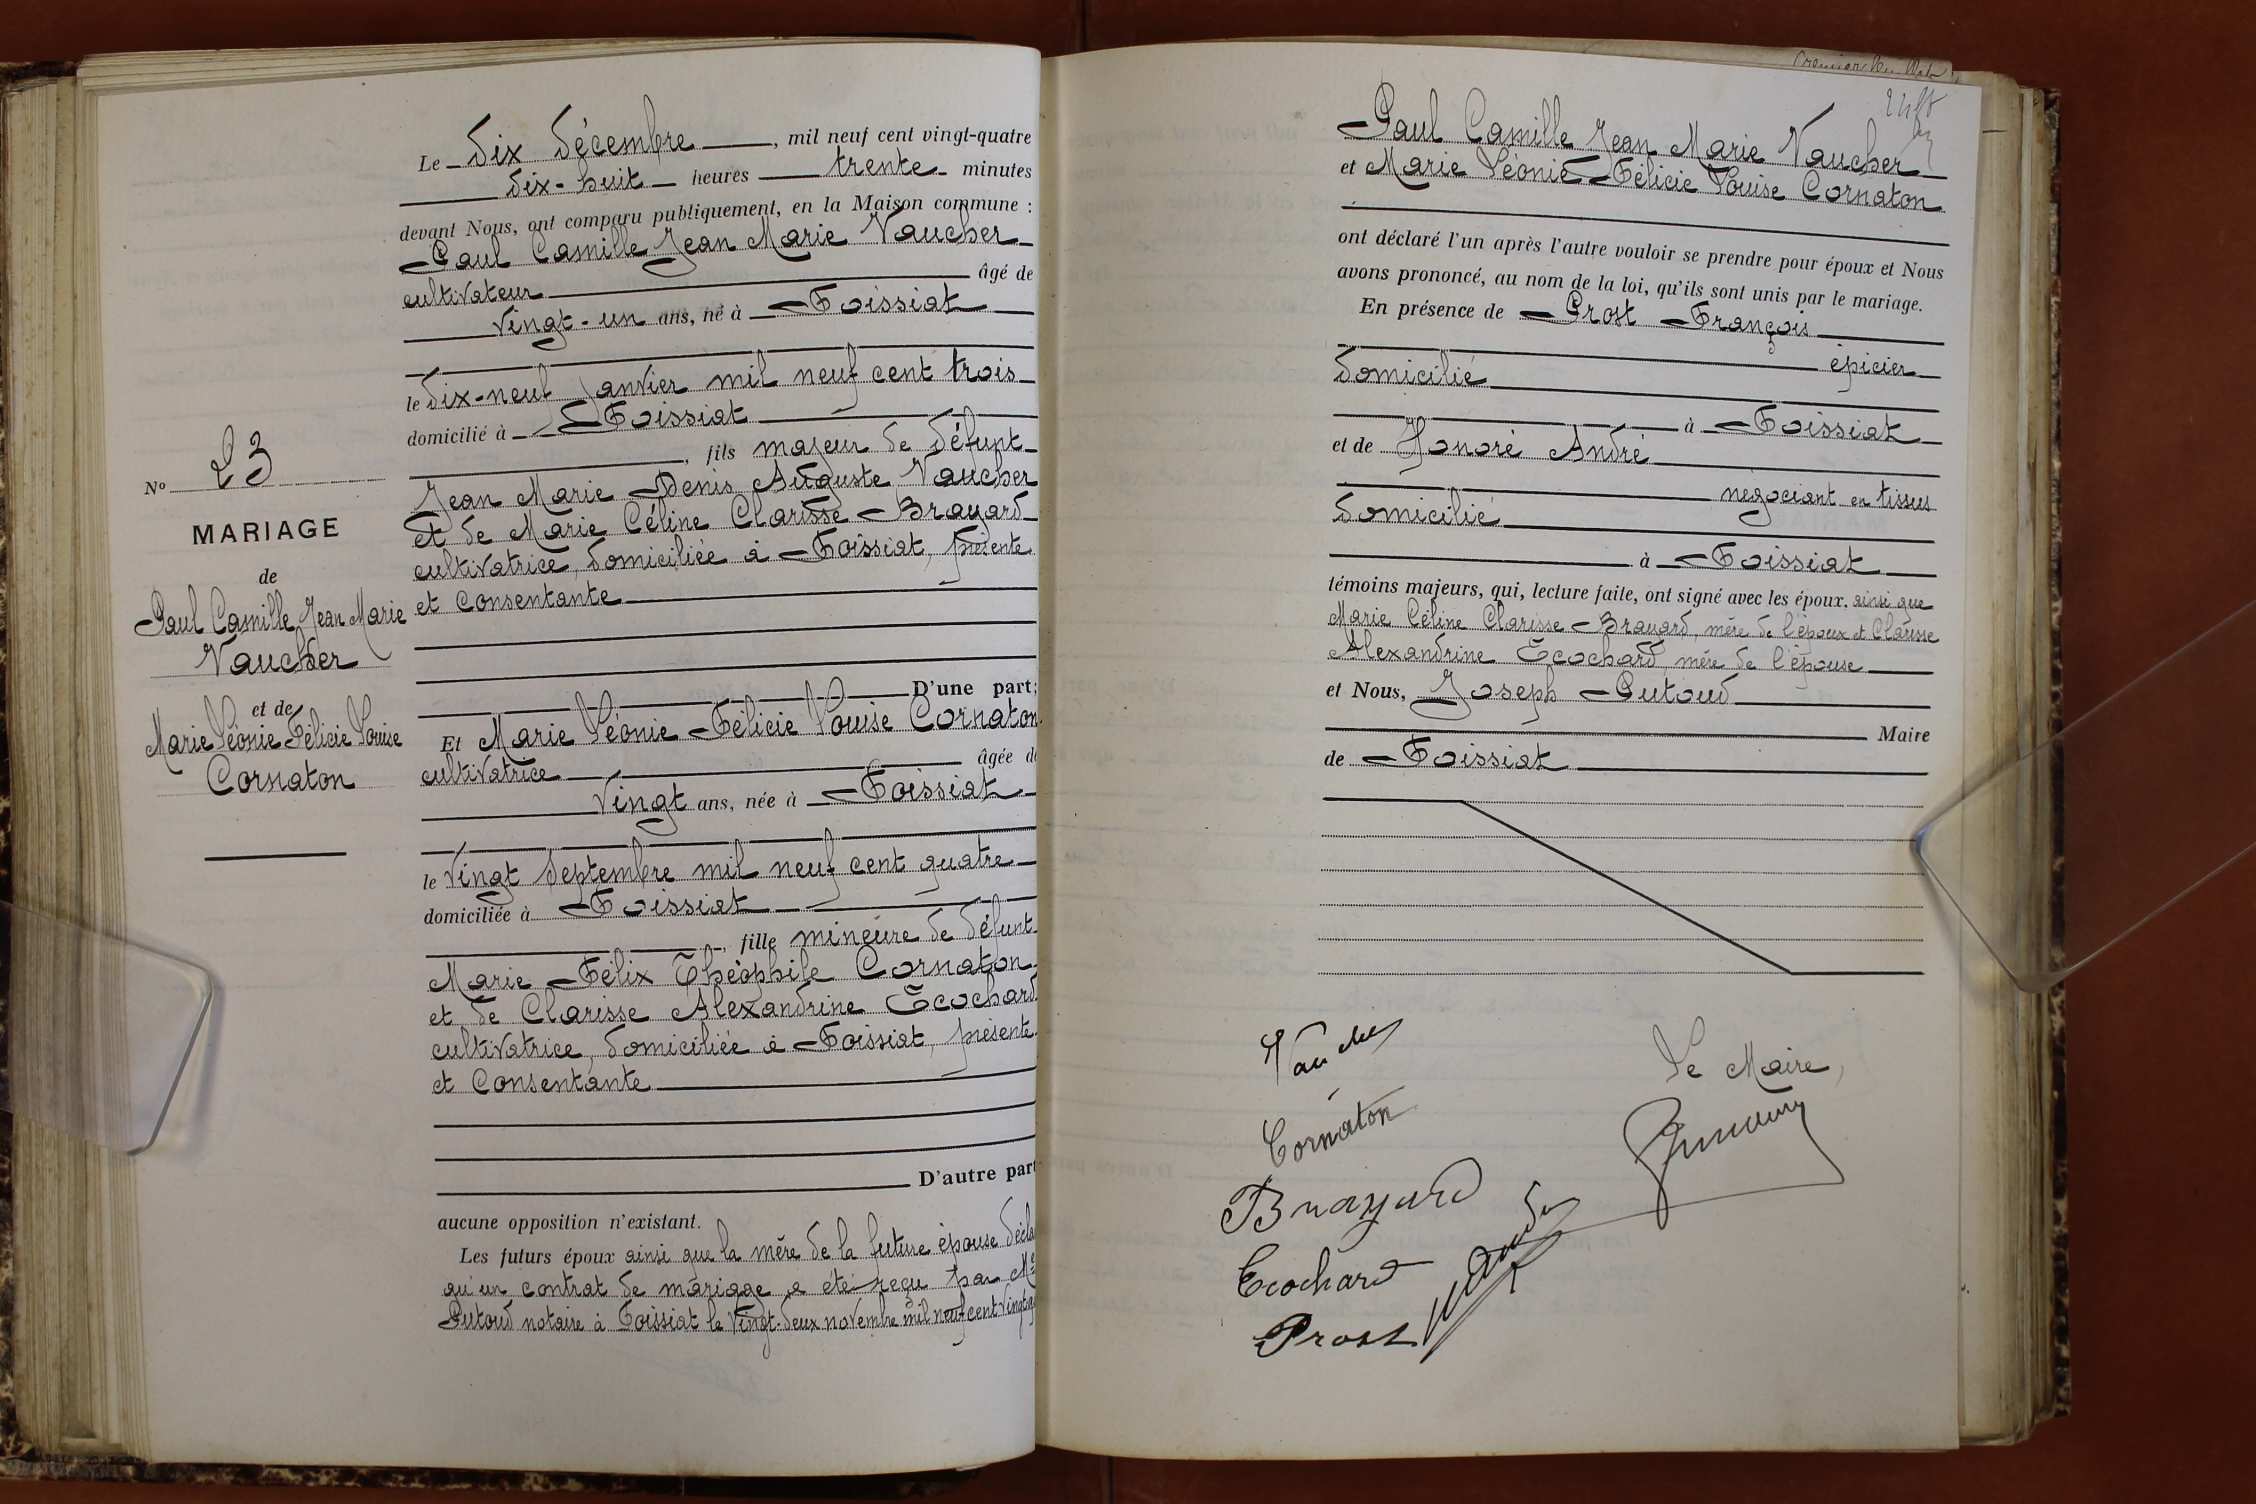 N° 23
MARIAGE
de
Paul Camille Jean Marie
Vaucher
et de
Marie Léonie Félicie Louise
Cornaton
Le dix décembre, mil neuf cent vingt-quatre
dix-huit heures trente minutes
devant Nous, ont comparu publiquement, en la Maison commune :
Paul Camille Jean Marie Vaucher
cultivateur âgé de
vingt-un ans, né à Foissiat
le dix-neuf janvier mil neuf cent trois
domicilié à Foissiat
, fils majeur de défunt
Jean Marie Denis Auguste Vaucher
et de Marie Céline Clarisse Brayard
cultivatrice, domiciliée à Foissiat, présente
et consentante
D'une part;
Et Marie Léonie Félicie Louise Cornaton
cultivatrice âgée de
vingt ans, née à Foissiat
le vingt septembre mil neuf cent quatre
domiciliée à Foissiat
, fille mineure de défunt
Marie Félix Théophile Cornaton
et de Clarisse Alexandrine Ecochard
cultivatrice, domiciliée à Foissiat, présente
et consentante
D'autre part
aucune opposition n'existant.
Les futurs époux ainsi que la mère de la future épouse décla
qu'un contrat de mariage a été reçu par Me
Putoud notaire à Foissiat le vingt-deux novembre mil neuf cent vingt
Paul Camille Jean Marie Vaucher
et Marie Léonie Félicie Louise Cornaton
ont déclaré l'un après l'autre vouloir se prendre pour époux et Nous
avons prononcé, au nom de la loi, qu'ils sont unis par le mariage.
En présence de Prost François
épicier
domicilié
à Foissiat
et de Honoré André
négociant en tissus
domicilié
à Foissiat
témoins majeurs, qui, lecture faite, ont signé avec les époux, ainsi que
Marie Céline Clarisse Brayard, mère de l'époux et Clarisse
Alexandrine Ecochard, mère de l'épouse
et Nous, Joseph Putoud
Maire
de Foissiat
Vaucher
Le Maire,
Cornaton
Brayard
Ecochard
Prost